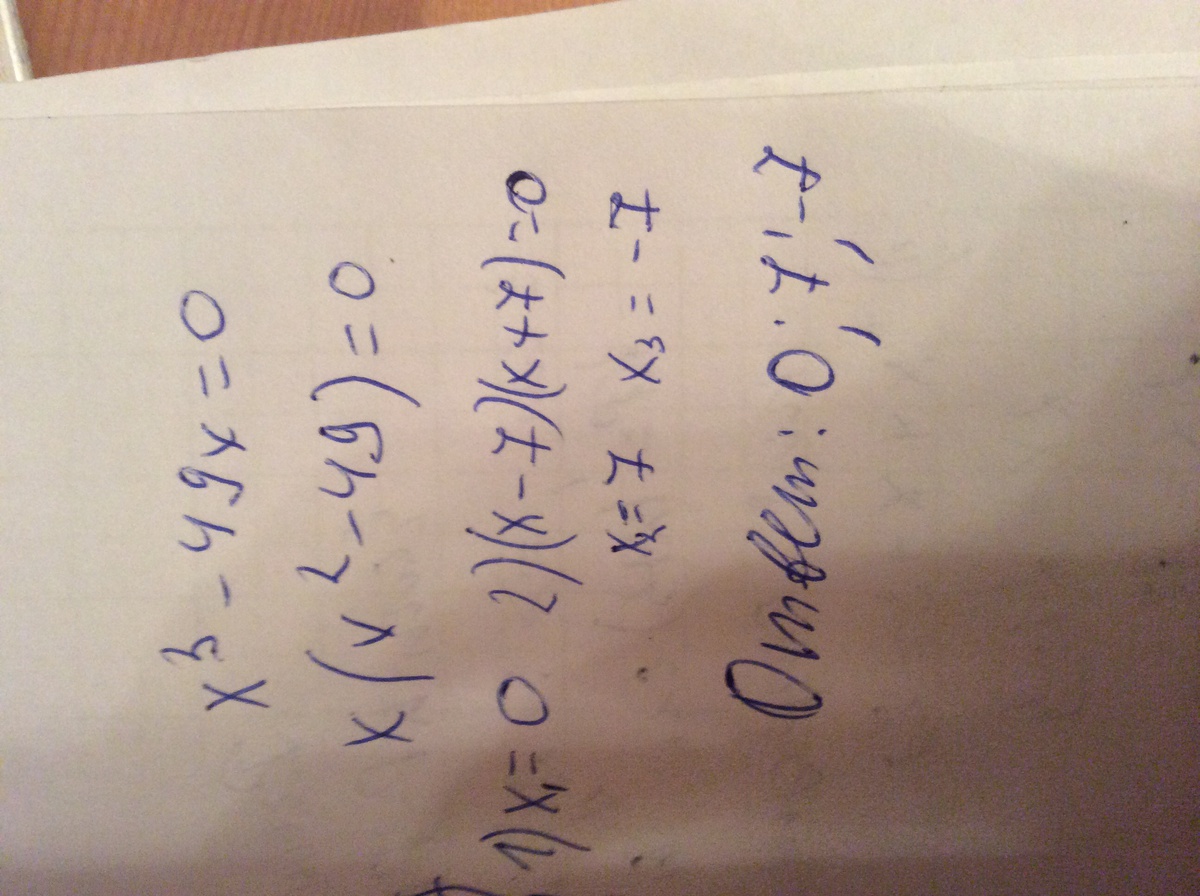 x³ - 49x = 0
x(x² - 49) = 0
1) x₁ = 0 2) (x - 7)(x + 7) = 0
x₂ = 7 x₃ = -7
Ответ: 0; 7; -7